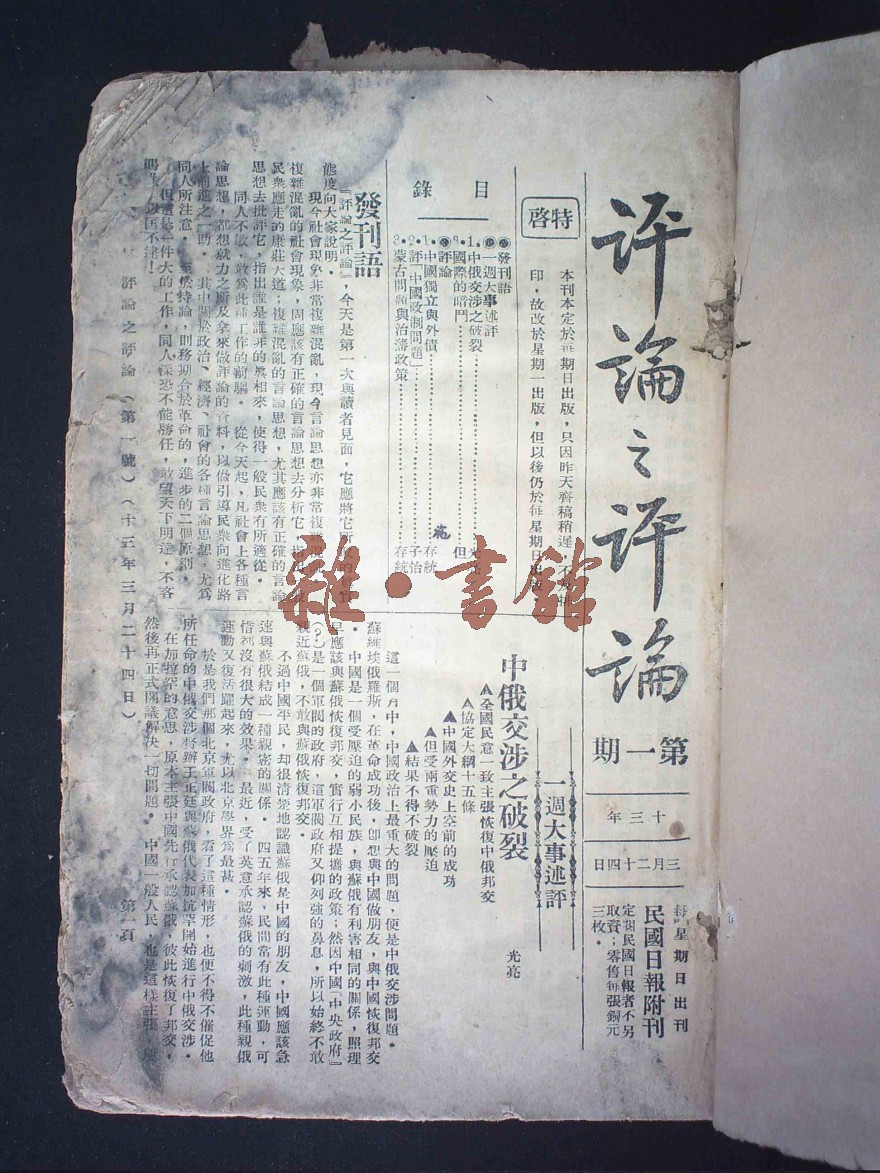 評論之評論
第一期
十三年
三月二十四日
每星期日出刊
民國日報附刊
定閱民國日報者不另
取資;零售每張銅元
三枚。
特啓
本刊本定於每期日出版,只因昨天齊稿稍遲,不及排
印,故改於星期一出版,但以後仍於每星期日出版
目錄
發刊語
一週大事述評
1.中俄交涉之破裂
2.國際的暗鬥 但一
評論
1.中國獨立與外債 存統
2.評「中國政制問題」 子怡
3.蒙古問題與治蕃政策 存統
發刊語
『評論之評論』,今天是第一次與讀者見面,它應將它所
態度向大家說明。
現今社會現象非常複雜混亂,現今言論思想亦非常複雜
複雜混亂的社會現象,固應該有正確的言論思想去分析它,指
民衆應走的康莊大道;複雜混亂的言論思想,尤其應該有正確的言論
思想去批評它,指出誰是誰非的眞相來,使得一般民衆有所適從。
同人不敏,敢爲此種工作的前驅。從今天起,凡社會上各種言
論思想,都想就力之所及拿來做評論的資料,以做引導民衆向進化路
上前進之一助。其中關於政治、經濟、社會的各種言論思想,尤爲
同人所注意。至於持論,則務期合於革命的,進步的二個原則。
但這是一件大的工作,同人深恐不能勝任,敢望天下明達,不吝
以匡不逮!
一週大事述評
中俄交涉之破裂 光亮
▲全國民意一致主張恢復中俄邦交
▲協定大綱十五條
▲中國外交史上空前的成功
▲但受兩重勢力的壓迫
▲結果不得不破裂
這一個月中,中國政治上最重大的問題,便是中俄交涉問題。
蘇維埃俄羅斯,在革命成功後,卽想與中國做朋友,與中國恢復邦交
。中國是一個受壓迫的弱小民族,與蘇俄有利害相同的關係,照理
早應該與蘇俄恢復邦交,實行互相提攜的政策;然因中國『中央政府』
(?)是一個軍閥的政府,這軍閥政府又仰列強的鼻息,所以始終不敢
親近蘇俄,不敢與蘇俄恢復邦交。
不過中國平民,却很清楚地認識蘇俄是中國的朋友,中國應該急
速與蘇俄結成一種親密的關係。四五年來,民間常有此種運動,可
惜都沒有很大的效果。最近,受了英意承認蘇俄的刺激,此種親俄
運動又復活躍起來,尤以北京學界爲最甚。
於是我們那個北京軍閥政府,看了這種情形,也便不得不催促他
所任命的中俄交涉督辦王正廷與蘇俄代表加拉罕開始進行中俄交涉。
在加拉罕的意思,原本主張中國先行承認蘇俄,彼此恢復了邦交,
然後再正式開議解決一切問題。中國一般人民,也是這樣主張
評論之評論 (第一號) (十三年三月二十四日) 第一頁
雜·書館